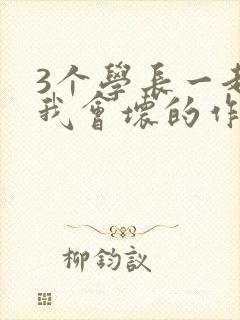 3个學長一
我會壞的作
柳鈞議